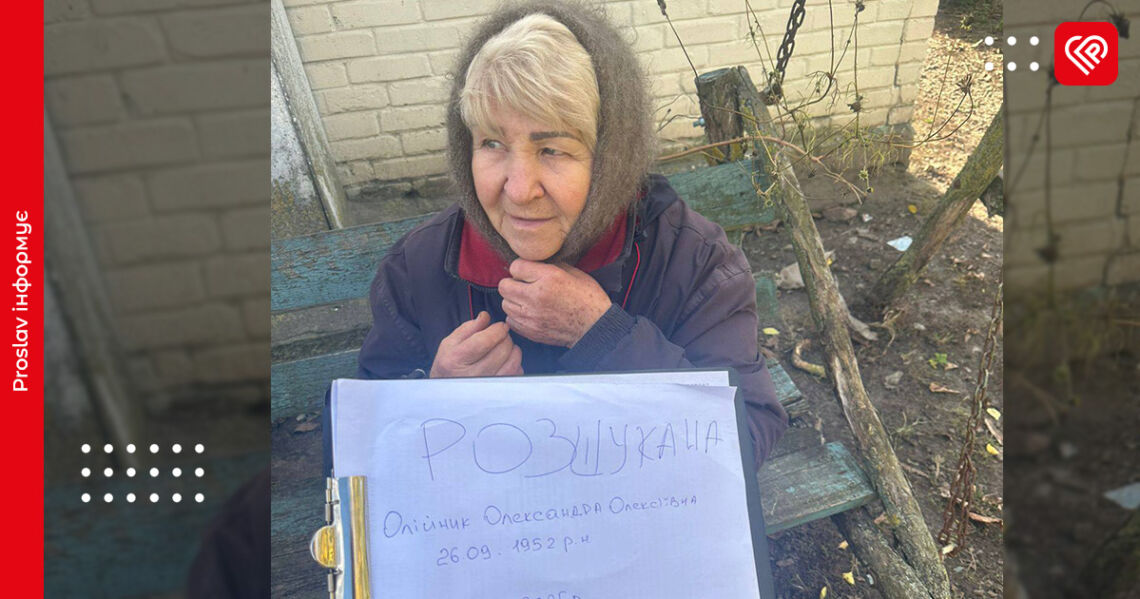 Proslav інформує
РОЗШУКАНА
Олійник Олександра Олексіївна
26.09.1952 р.н